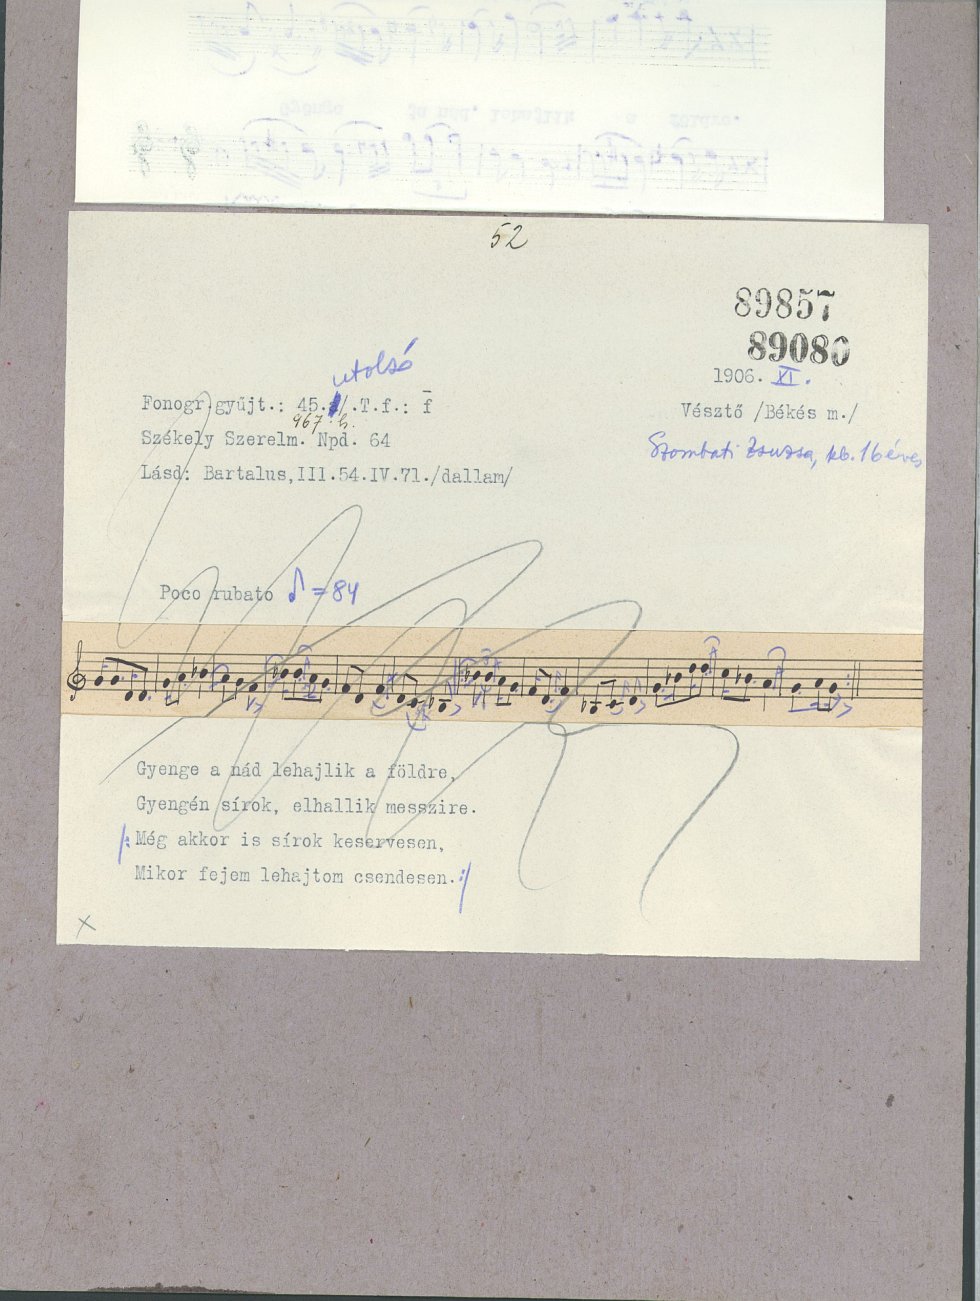 52
89857
89080
1906. XI.
utolsó
Fonogr.gyűjt.: 45. /.T.f.: f̄
Vésztő /Békés m./
967. h.
Székely Szerelm. Npd. 64
Szombati Zsuzsa, kb. 16 éves
Lásd: Bartalus,III.54.IV.71./dallam/
Poco rubato ♪ = 84
Gyenge a nád lehajlik a földre,
Gyengén sírok, elhallik messzire.
/: Még akkor is sírok keservesen,
Mikor fejem lehajtom csendesen. :/